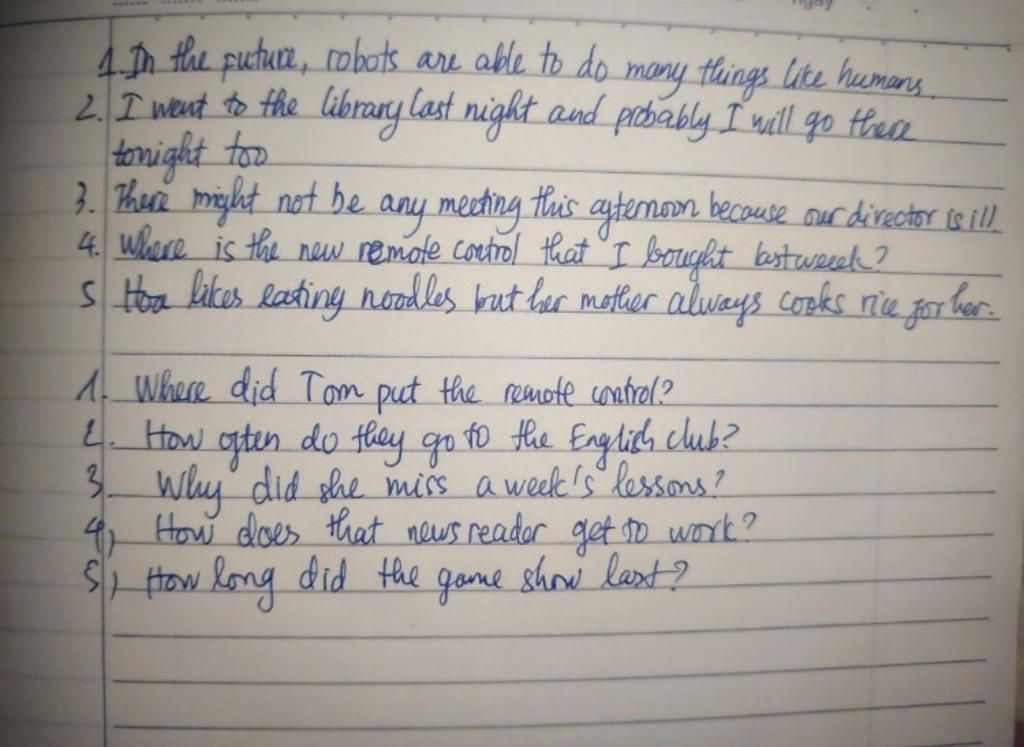 ngày
1. In the future, robots are able to do many things like humans.
2. I went to the library last night and probably I will go there
tonight too
3. There might not be any meeting this afternoon because our director is ill.
4. Where is the new remote control that I bought last weeek?
5 Hoa likes eating noodles but her mother always cooks rice for her.
1. Where did Tom put the remote control?
2. How often do they go to the English club?
3. Why did she miss a week's lessons?
4, How does that newsreader get to work?
5, How long did the game show last?